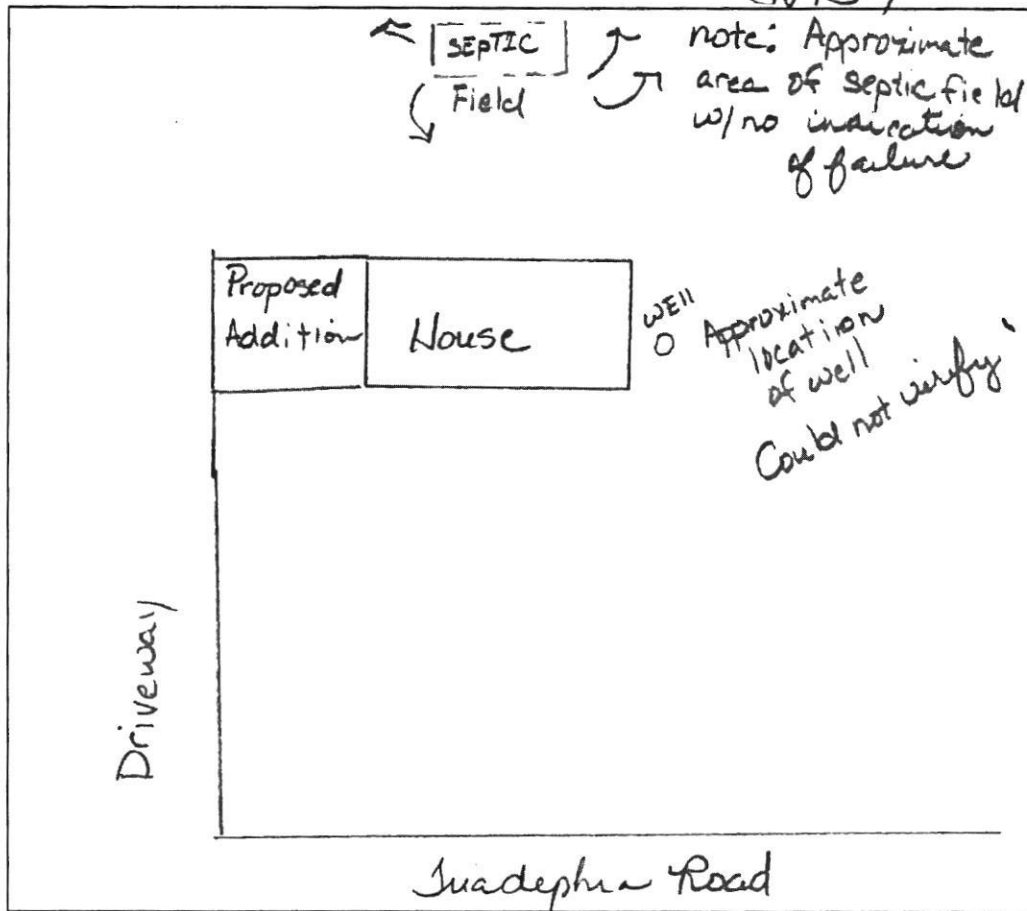 SEPTIC
Field
note: Approximate
area of septic field
w/no indication
of failure
Proposed
Addition
House
WEll
Approximate
location
of well
Could not verify
Driveway
Road